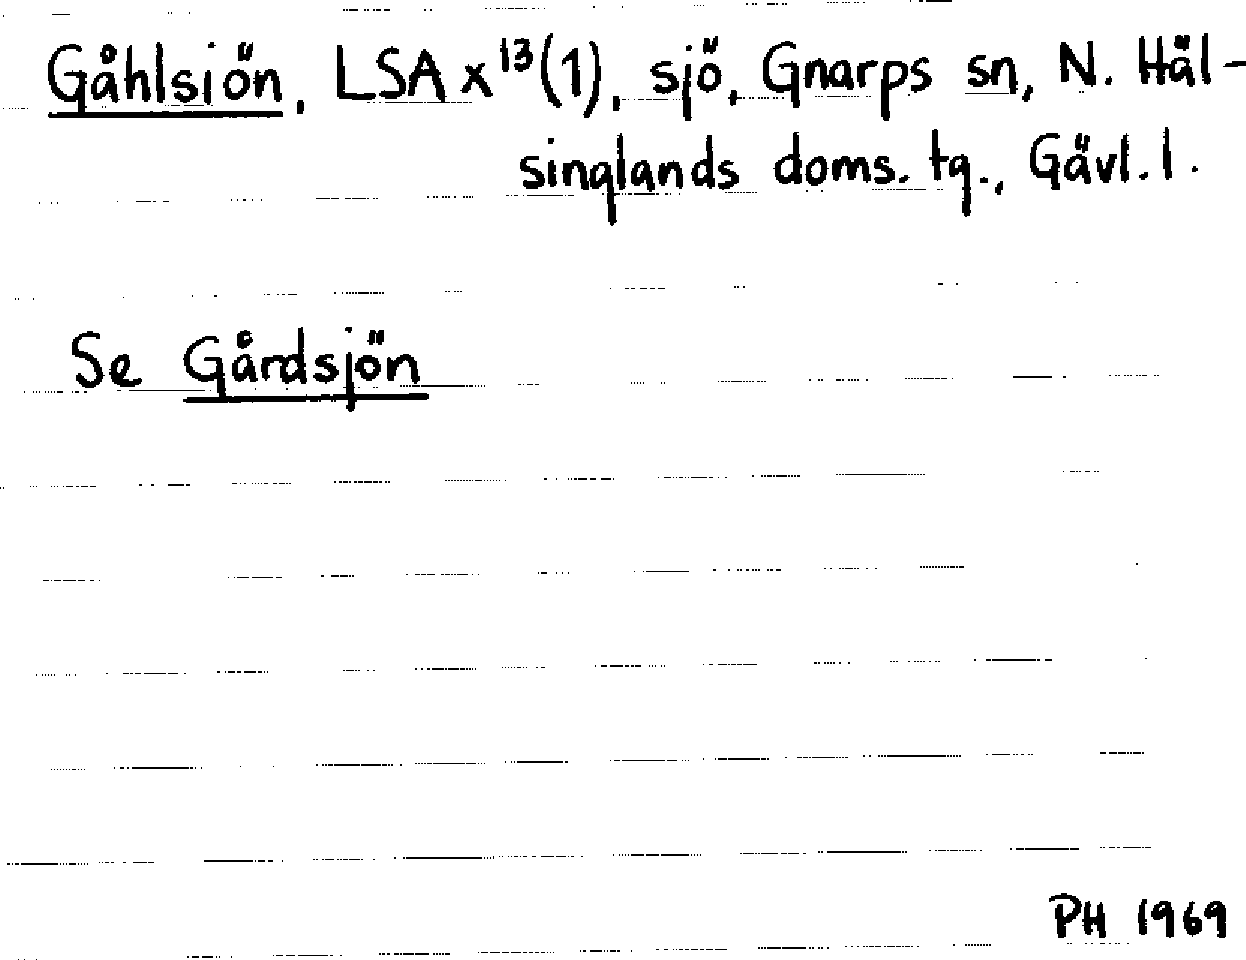 Gåhlsiön, LSA x¹³(1), sjö, Gnarps sn, N. Häl-
singlands doms. tg., Gävl. l.
Se Gårdsjön
PH 1969